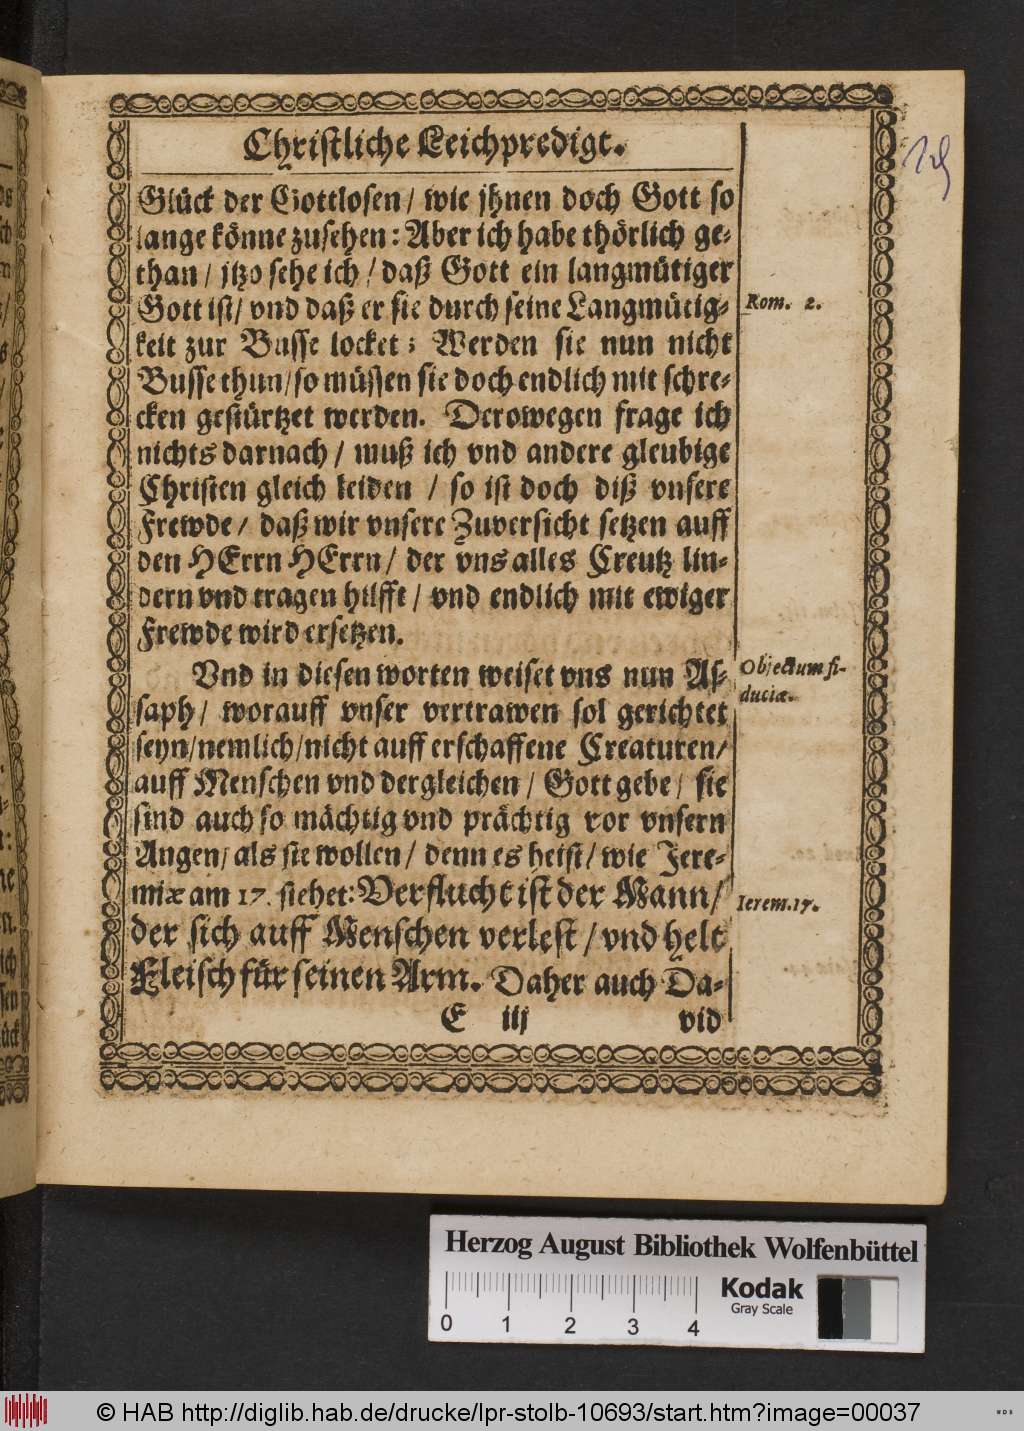 Christliche Leichpredigt.
Glück der Gottlosen / wie jhnen doch Gott so
lange könne zusehen: Aber ich habe thörlich ge-
than / jtzo sehe ich / daß Gott ein langmütiger
Gott ist / vnd daß er sie durch seine Langmütig-
Rom. 2.
keit zur Busse locket; Werden sie nun nicht
Busse thun / so müssen sie doch endlich mit schre-
cken gestürtzet werden. Derowegen frage ich
nichts darnach / muß ich vnd andere gleubige
Christen gleich leiden / so ist doch diß vnsere
Frewde / daß wir vnsere Zuversicht setzen auff
den HErrn HErrn / der vns alles Creutz lin-
dern vnd tragen hilfft / vnd endlich mit ewiger
Frewde wird ersetzen.
Vnd in diesen worten weiset vns nun As-
Objectum fi-
duciæ.
saph / worauff vnser vertrawen sol gerichtet
seyn / nemlich / nicht auff erschaffene Creaturen /
auff Menschen vnd dergleichen / Gott gebe / sie
sind auch so mächtig vnd prächtig vor vnsern
Augen / als sie wollen / denn es heist / wie Jere-
miæ am 17. stehet: Verflucht ist der Mann /
Ierem. 17.
der sich auff Menschen verlest / vnd helt
Fleisch für seinen Arm. Daher auch Da-
E iij vid
Herzog August Bibliothek Wolfenbüttel
Kodak
Gray Scale
0 1 2 3 4
© HAB http://diglib.hab.de/drucke/lpr-stolb-10693/start.htm?image=00037